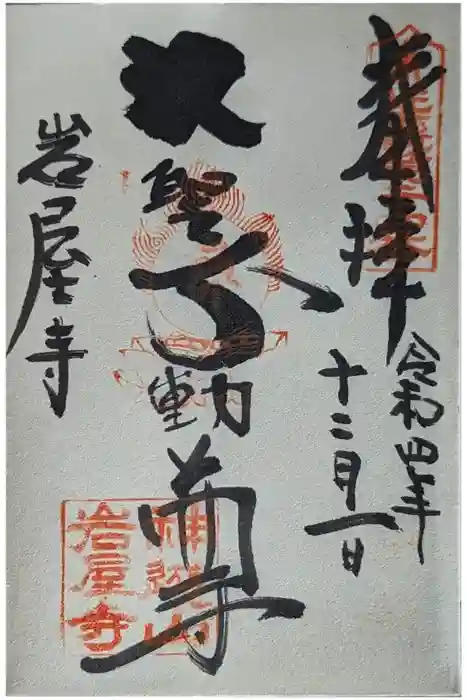 奉拝
令和四年
十二月一日
大聖不動尊
岩屋寺
神遊山
岩屋寺